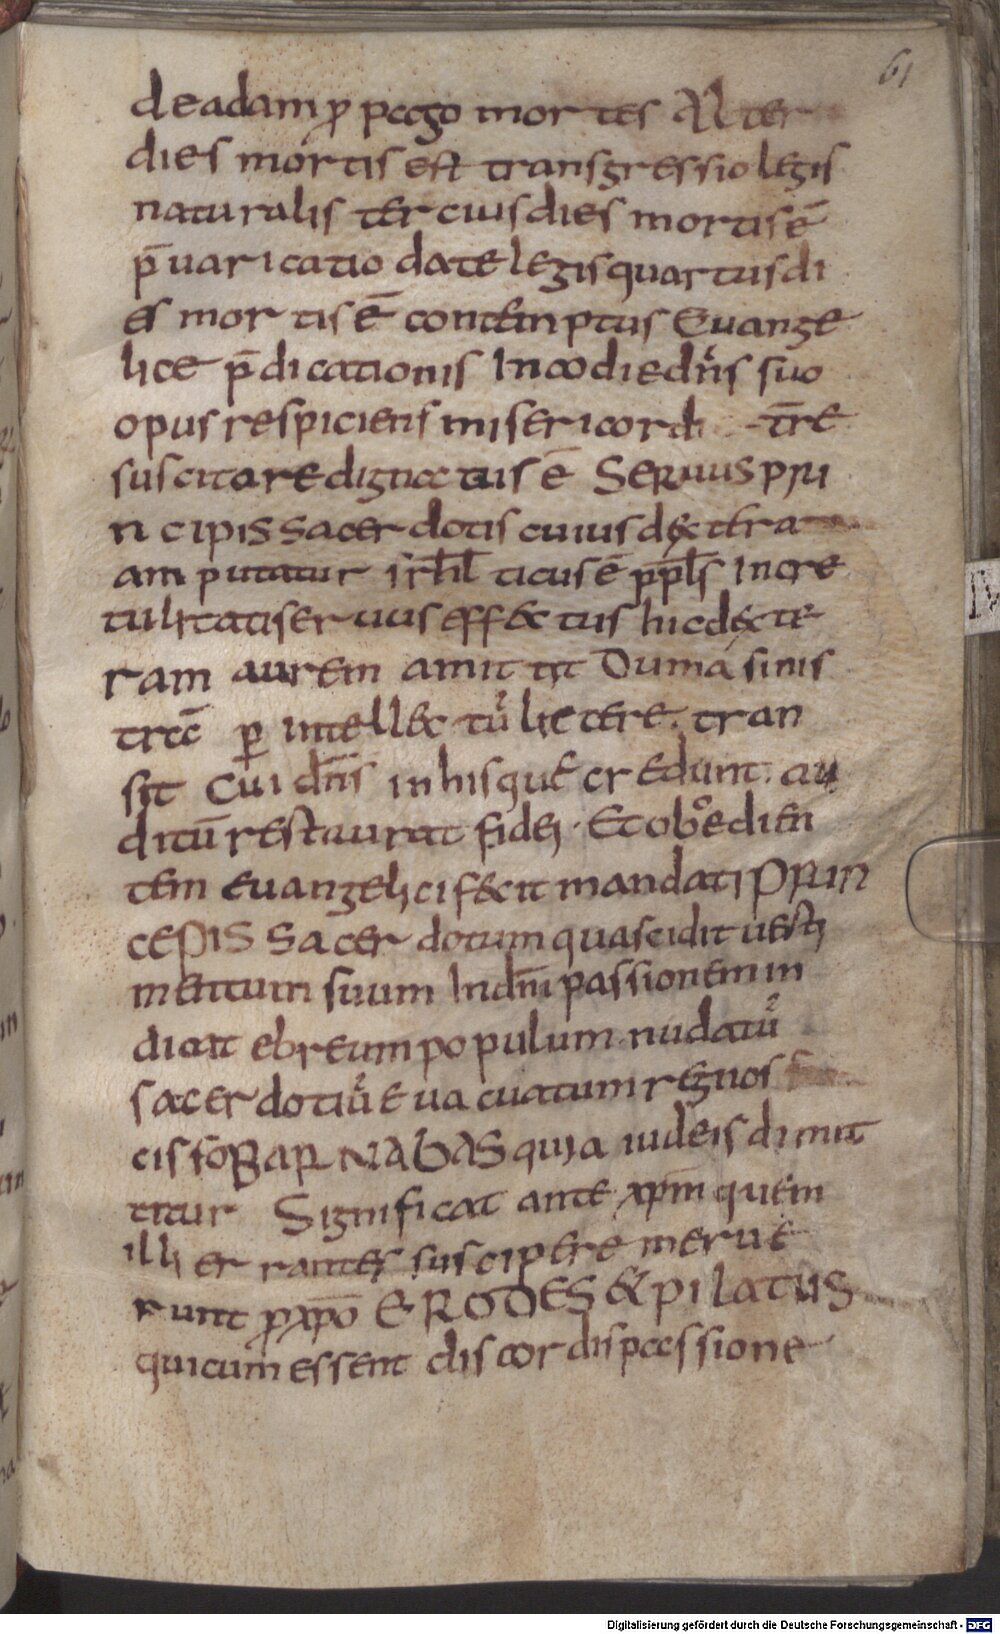 61
deadam ꝓ pccgo mortes Alter
dies mortis est transgressio legis
naturalis tercius dies mortis ē
p̄uaricatio date legis quartus di
es mortis ē contemptus Euange
lice p̄dicationis In co die dn̄s suo
opus respiciens misericord t̄re
suscitare dignatus ē Seruus prin
n cipis sacerdotis cuius dextera
amputatur isrhl ticus ē ppl̄s Incre
tulitati seruus effectus hic dexte
ram aurem amittit Dum a sinis
trā per intellectū lictere. tran
sit Cui dn̄s in his que credunt. au
ditū restaurat fidei · Et oboedien
tem euangelici fecit mandati PRIN
CEPIS Sacerdotum qua scidit uesti
mentum suum In dn̄i passionem in
dicat ebreum populum nudatū
sacerdotiū euacuatum regno s
cisso BARNABAS quia iudeis dimit
titur Significat ante xpm̄ quem
illi errantes suscipere merue
runt ꝓ xpō ERODES & pilatus
qui cum essent discordis pcessione
Digitalisierung gefördert durch die Deutsche Forschungsgemeinschaft - DFG